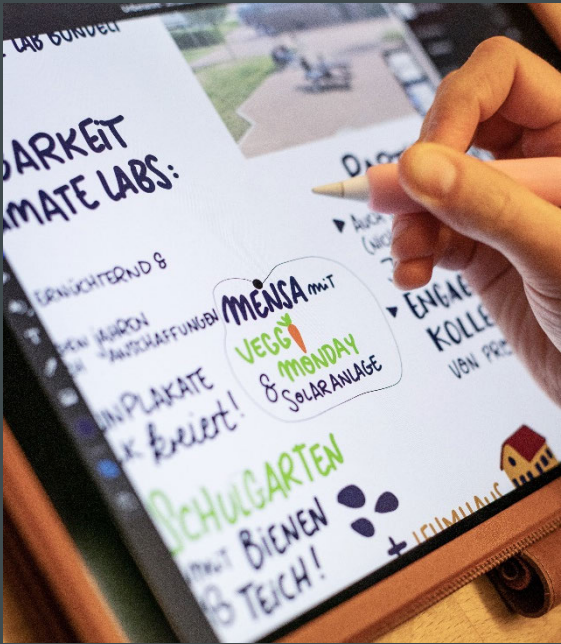 LAB GÜNDELT
BARKEIT
MATE LABS:
ERNÜCHTERND &
EN JAHREN
ANSCHAFFUNGEN
INPLAKATE
kreiert!
MENSA MIT
VEGGI
MONDAY
& SOLARANLAGE
SCHULGARTEN
MIT BIENEN
& TEICH!
AUCH
ENGAE
KOLLE
VON PRI
+ LEHMHAUS